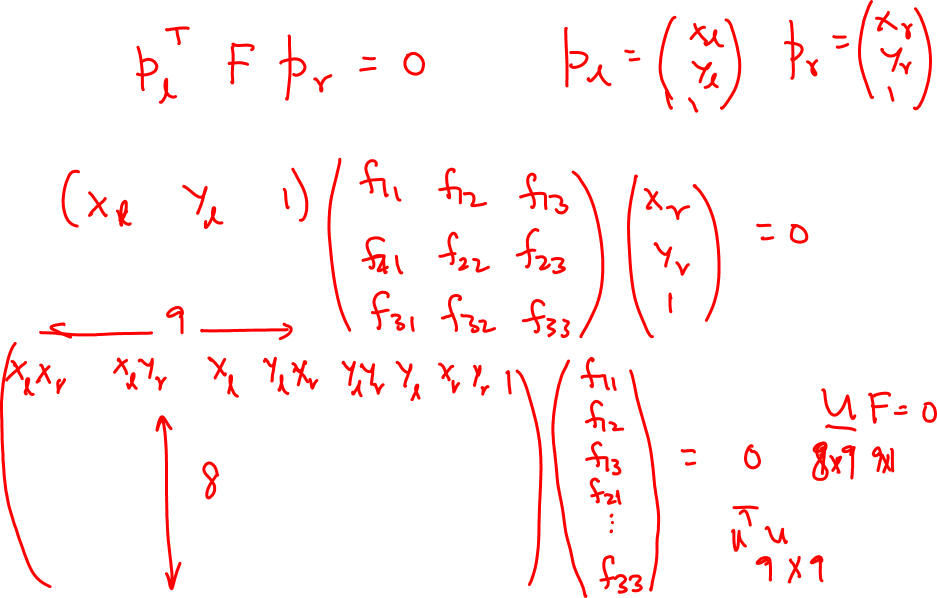 p_l^T F p_r = 0    p_l = (x_l y_l 1)    p_r = (x_r y_r 1)
(x_l y_l 1) (f11 f12 f13
f21 f22 f23
f31 f32 f33) (x_r y_r 1) = 0
← 9 →
(x_l x_r  x_l y_r  x_l  y_l x_r  y_l y_r  y_l  x_r  y_r  1) (f11 f12 f13 f21 ⋮ f33) = 0    U F = 0
8    8x9 9x1
u^T u
9 x 9